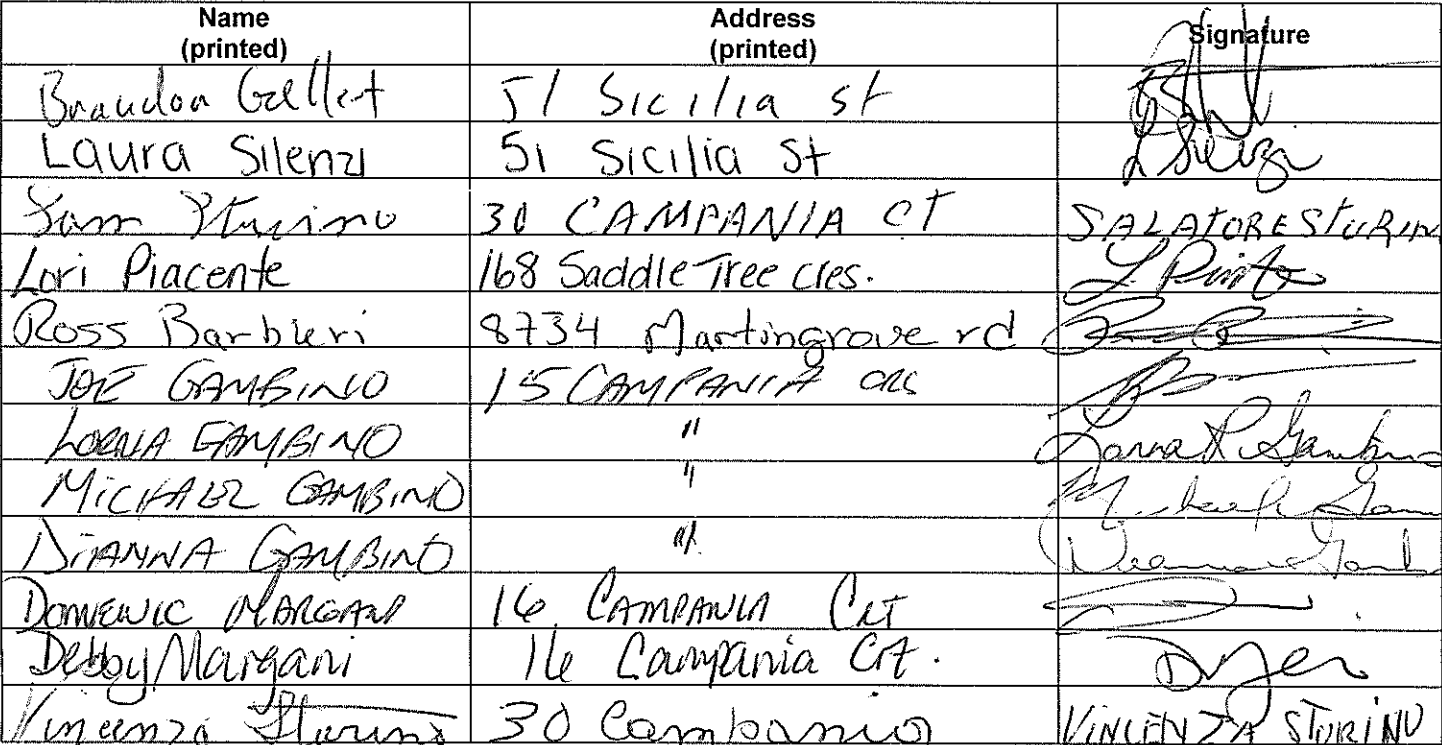 Name Address Signature
(printed) (printed)
Brandon Gellet 51 Sicilia st
Laura Silenzi 51 Sicilia St L Silenzi
Sam Sturino 30 CAMPANIA CT SALATORE STURIN
Lori Piacente 168 Saddle Tree cres.
Ross Barbieri 8734 Martingrove rd
JOE GAMBINO 15 CAMPANIA CRS
LORNA GAMBINO "
MICHAEL GAMBINO "
DIANNA GAMBINO "
DOMENIC MARGANI 16 CAMPANIA CRT
Debby Margani 16 Campania Crt.
Vincenza Sturino 30 Campania VINCENZA STURINO